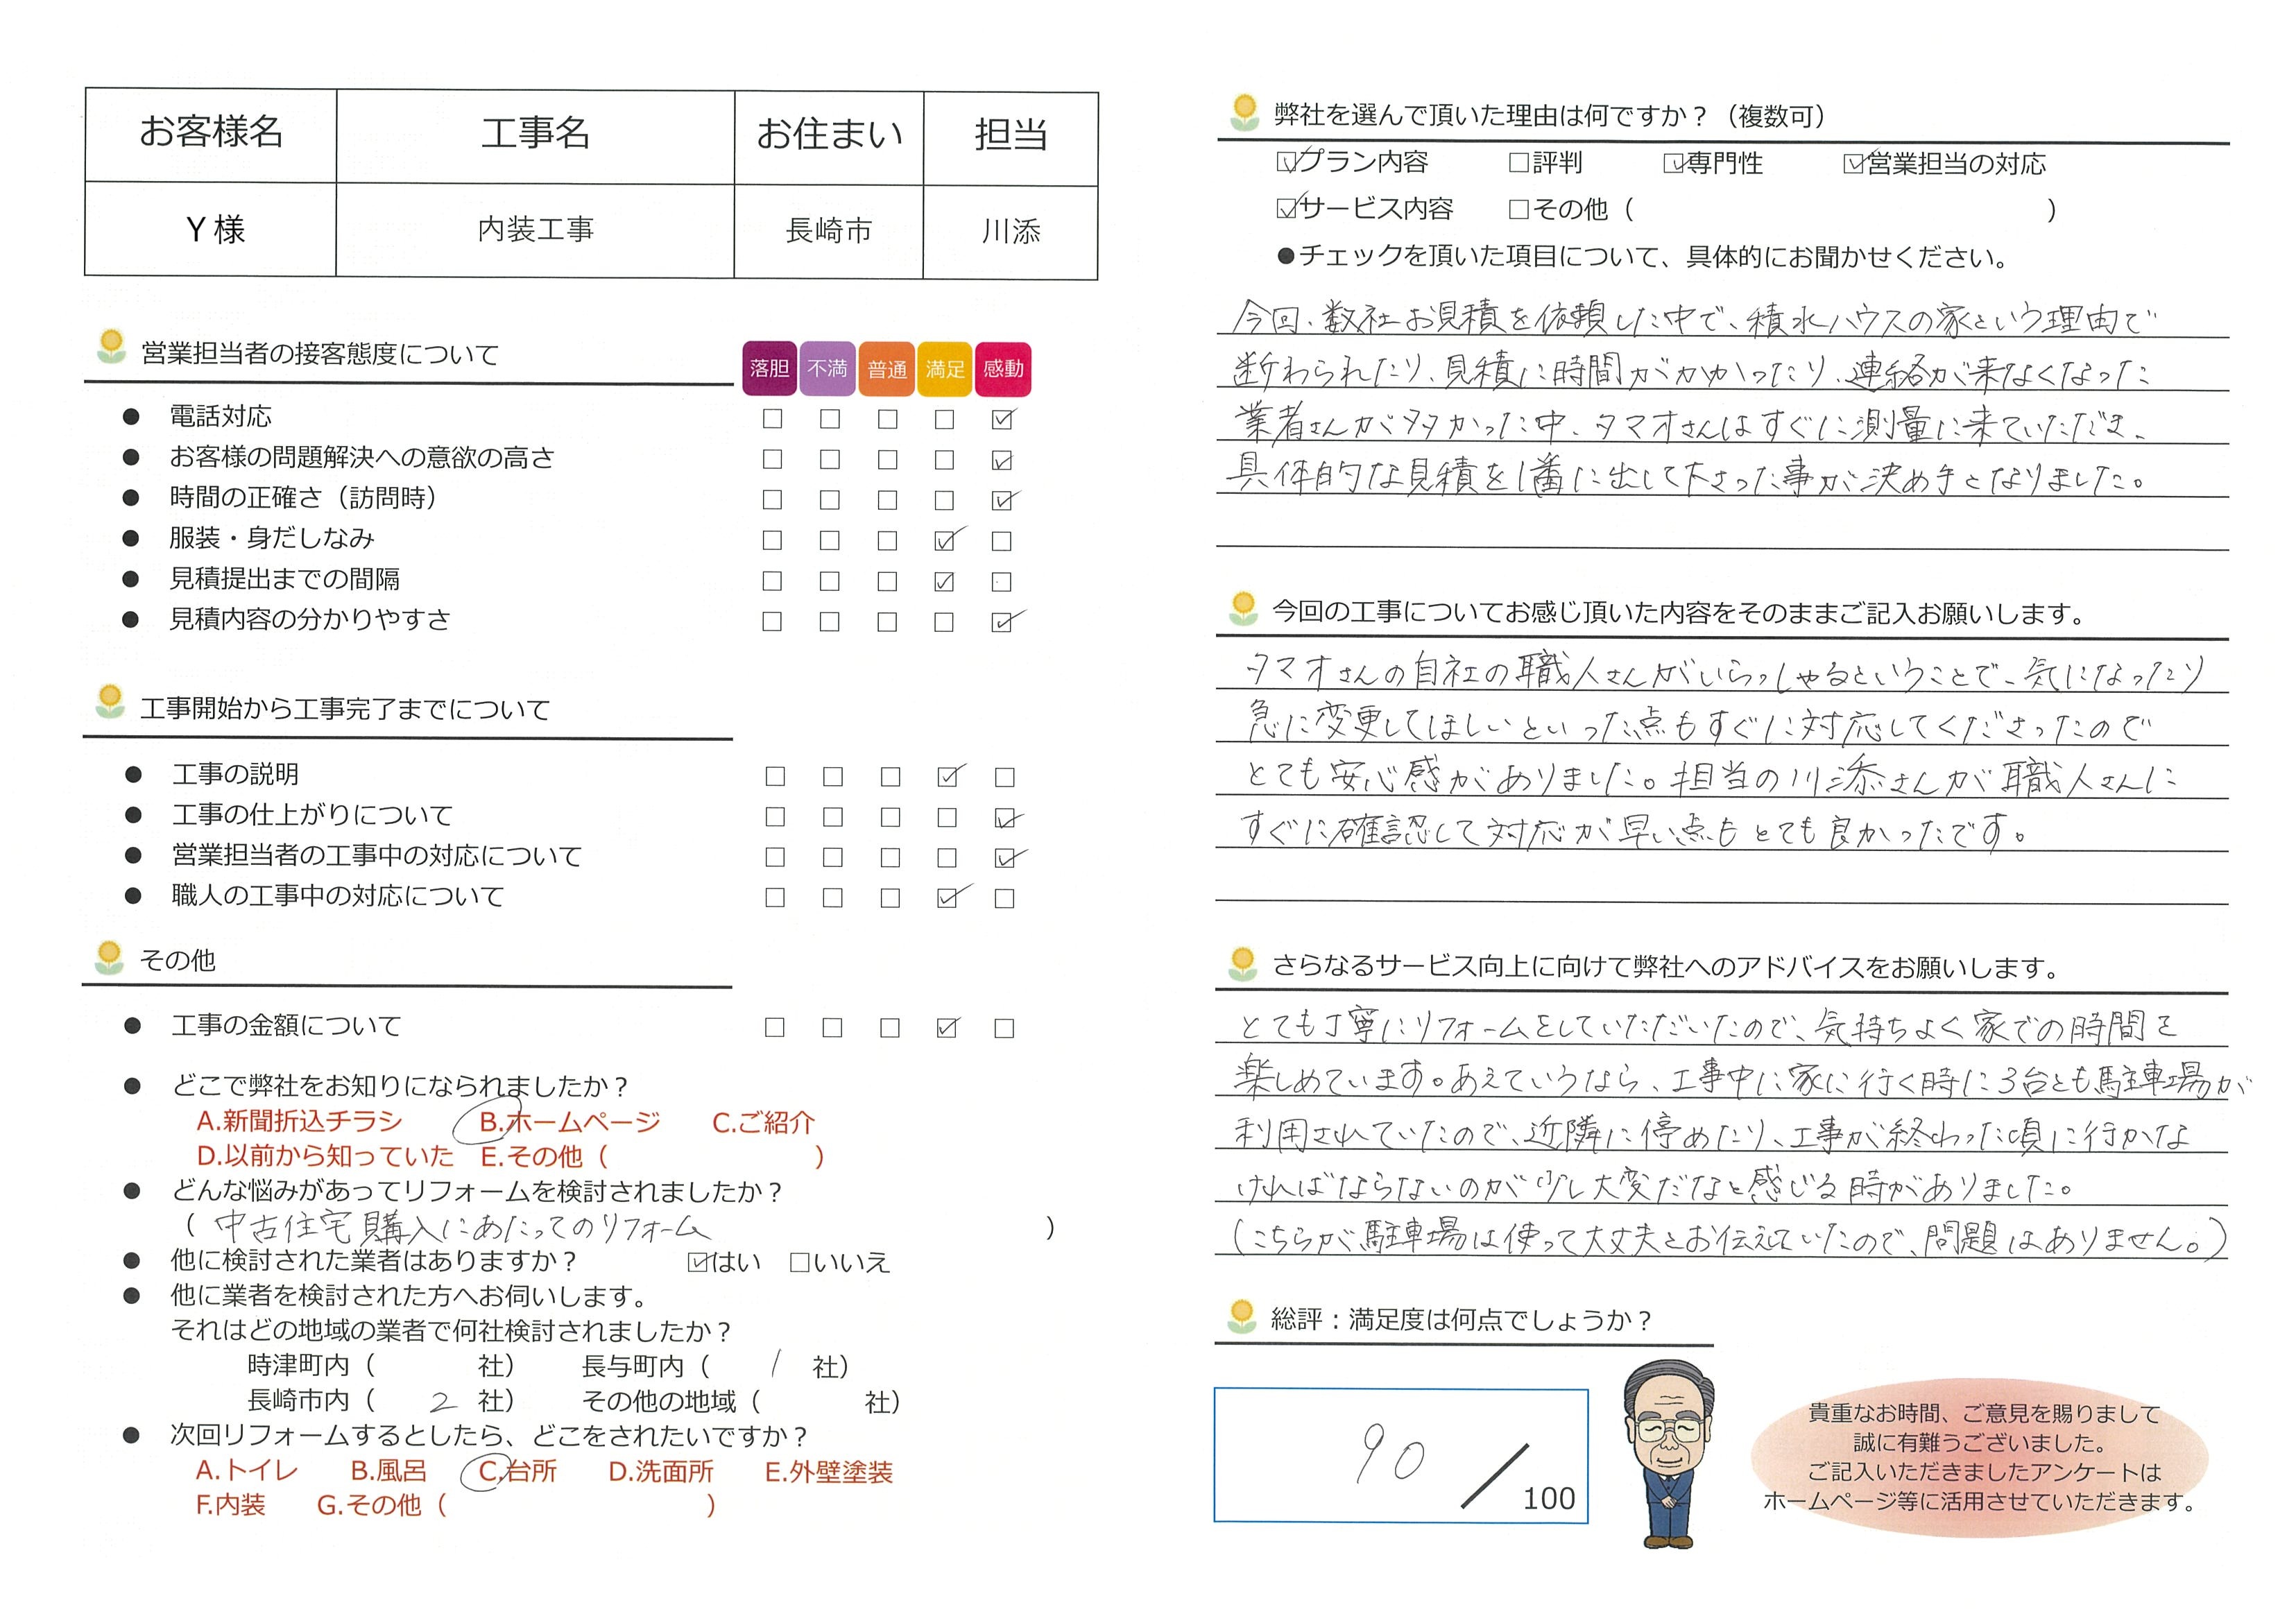 お客様名 工事名 お住まい 担当
Y様 内装工事 長崎市 川添
営業担当者の接客態度について
落胆 不満 普通 満足 感動
● 電話対応 □ □ □ □ ☑
● お客様の問題解決への意欲の高さ □ □ □ □ ☑
● 時間の正確さ（訪問時） □ □ □ □ ☑
● 服装・身だしなみ □ □ □ ☑ □
● 見積提出までの間隔 □ □ □ ☑ □
● 見積内容の分かりやすさ □ □ □ □ ☑
工事開始から工事完了までについて
● 工事の説明 □ □ □ ☑ □
● 工事の仕上がりについて □ □ □ □ ☑
● 営業担当者の工事中の対応について □ □ □ □ ☑
● 職人の工事中の対応について □ □ □ ☑ □
その他
● 工事の金額について □ □ □ ☑ □
● どこで弊社をお知りになられましたか？
A.新聞折込チラシ B.ホームページ C.ご紹介
D.以前から知っていた E.その他（ ）
● どんな悩みがあってリフォームを検討されましたか？
（ 中古住宅購入にあたってのリフォーム ）
● 他に検討された業者はありますか？ ☑はい □いいえ
● 他に業者を検討された方へお伺いします。
それはどの地域の業者で何社検討されましたか？
時津町内（ 社） 長与町内（ 1 社）
長崎市内（ 2 社） その他の地域（ 社）
● 次回リフォームするとしたら、どこをされたいですか？
A.トイレ B.風呂 C.台所 D.洗面所 E.外壁塗装
F.内装 G.その他（ ）
弊社を選んで頂いた理由は何ですか？（複数可）
☑プラン内容 □評判 ☑専門性 ☑営業担当の対応
☑サービス内容 □その他（ ）
●チェックを頂いた項目について、具体的にお聞かせください。
今回、数社お見積を依頼した中で、積水ハウスの家という理由で
断わられたり、見積に時間がかかったり、連絡が来なくなった
業者さんが多かった中、タマオさんはすぐに測量に来ていただき、
具体的な見積を1番に出して下さった事が決め手となりました。
今回の工事についてお感じ頂いた内容をそのままご記入お願いします。
タマオさんの自社の職人さんがいらっしゃるということで、気になったり
急に変更してほしいといった点もすぐに対応してくださったので
とても安心感がありました。担当の川添さんが職人さんに
すぐに確認して対応が早い点もとても良かったです。
さらなるサービス向上に向けて弊社へのアドバイスをお願いします。
とても丁寧にリフォームをしていただいたので、気持ちよく家での時間を
楽しめています。あえていうなら、工事中に家に行く時に3台とも駐車場が
利用されていたので、近隣に停めたり、工事が終わった頃に行かな
ければならないのが少し大変だなと感じる時がありました。
（こちらが駐車場は使って大丈夫とお伝えしていたので、問題はありません。）
総評：満足度は何点でしょうか？
90／100
貴重なお時間、ご意見を賜りまして
誠に有難うございました。
ご記入いただきましたアンケートは
ホームページ等に活用させていただきます。